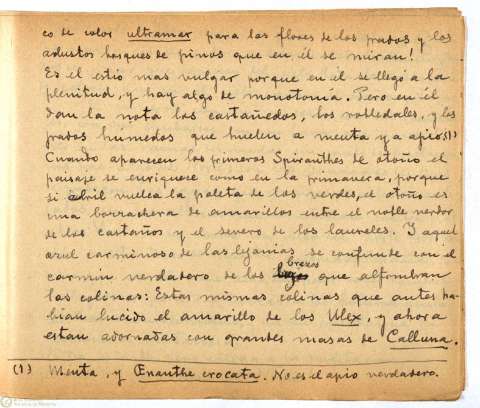 co de color ultramar para las flores de los prados y los
adustos bosques de pinos que en él se miran!
Es el estío mas vulgar porque en él se llegó a la
plenitud, y hay algo de monotonía. Pero en él
dan la nota los castañedos, los robledales, y los
prados húmedos que huelen a menta y a apio.(1)
Cuando aparecen los primeros Spiranthes de otoño el
paisaje se enriquece como en la primavera, porque
si abril vuelca la paleta de los verdes, el otoño es
una borrachera de amarillos entre el noble verdor
de los castaños y el severo de los laureles. Y aquel
azul carminoso de las lejanías se confunde con el
carmin verdadero de los brezos que alfombran
las colinas: Estas mismas colinas que antes ha-
bian lucido el amarillo de los Ulex, y ahora
estan adornadas con grandes masas de Calluna.
(1) Menta, y Œnanthe crocata. No es el apio verdadero.